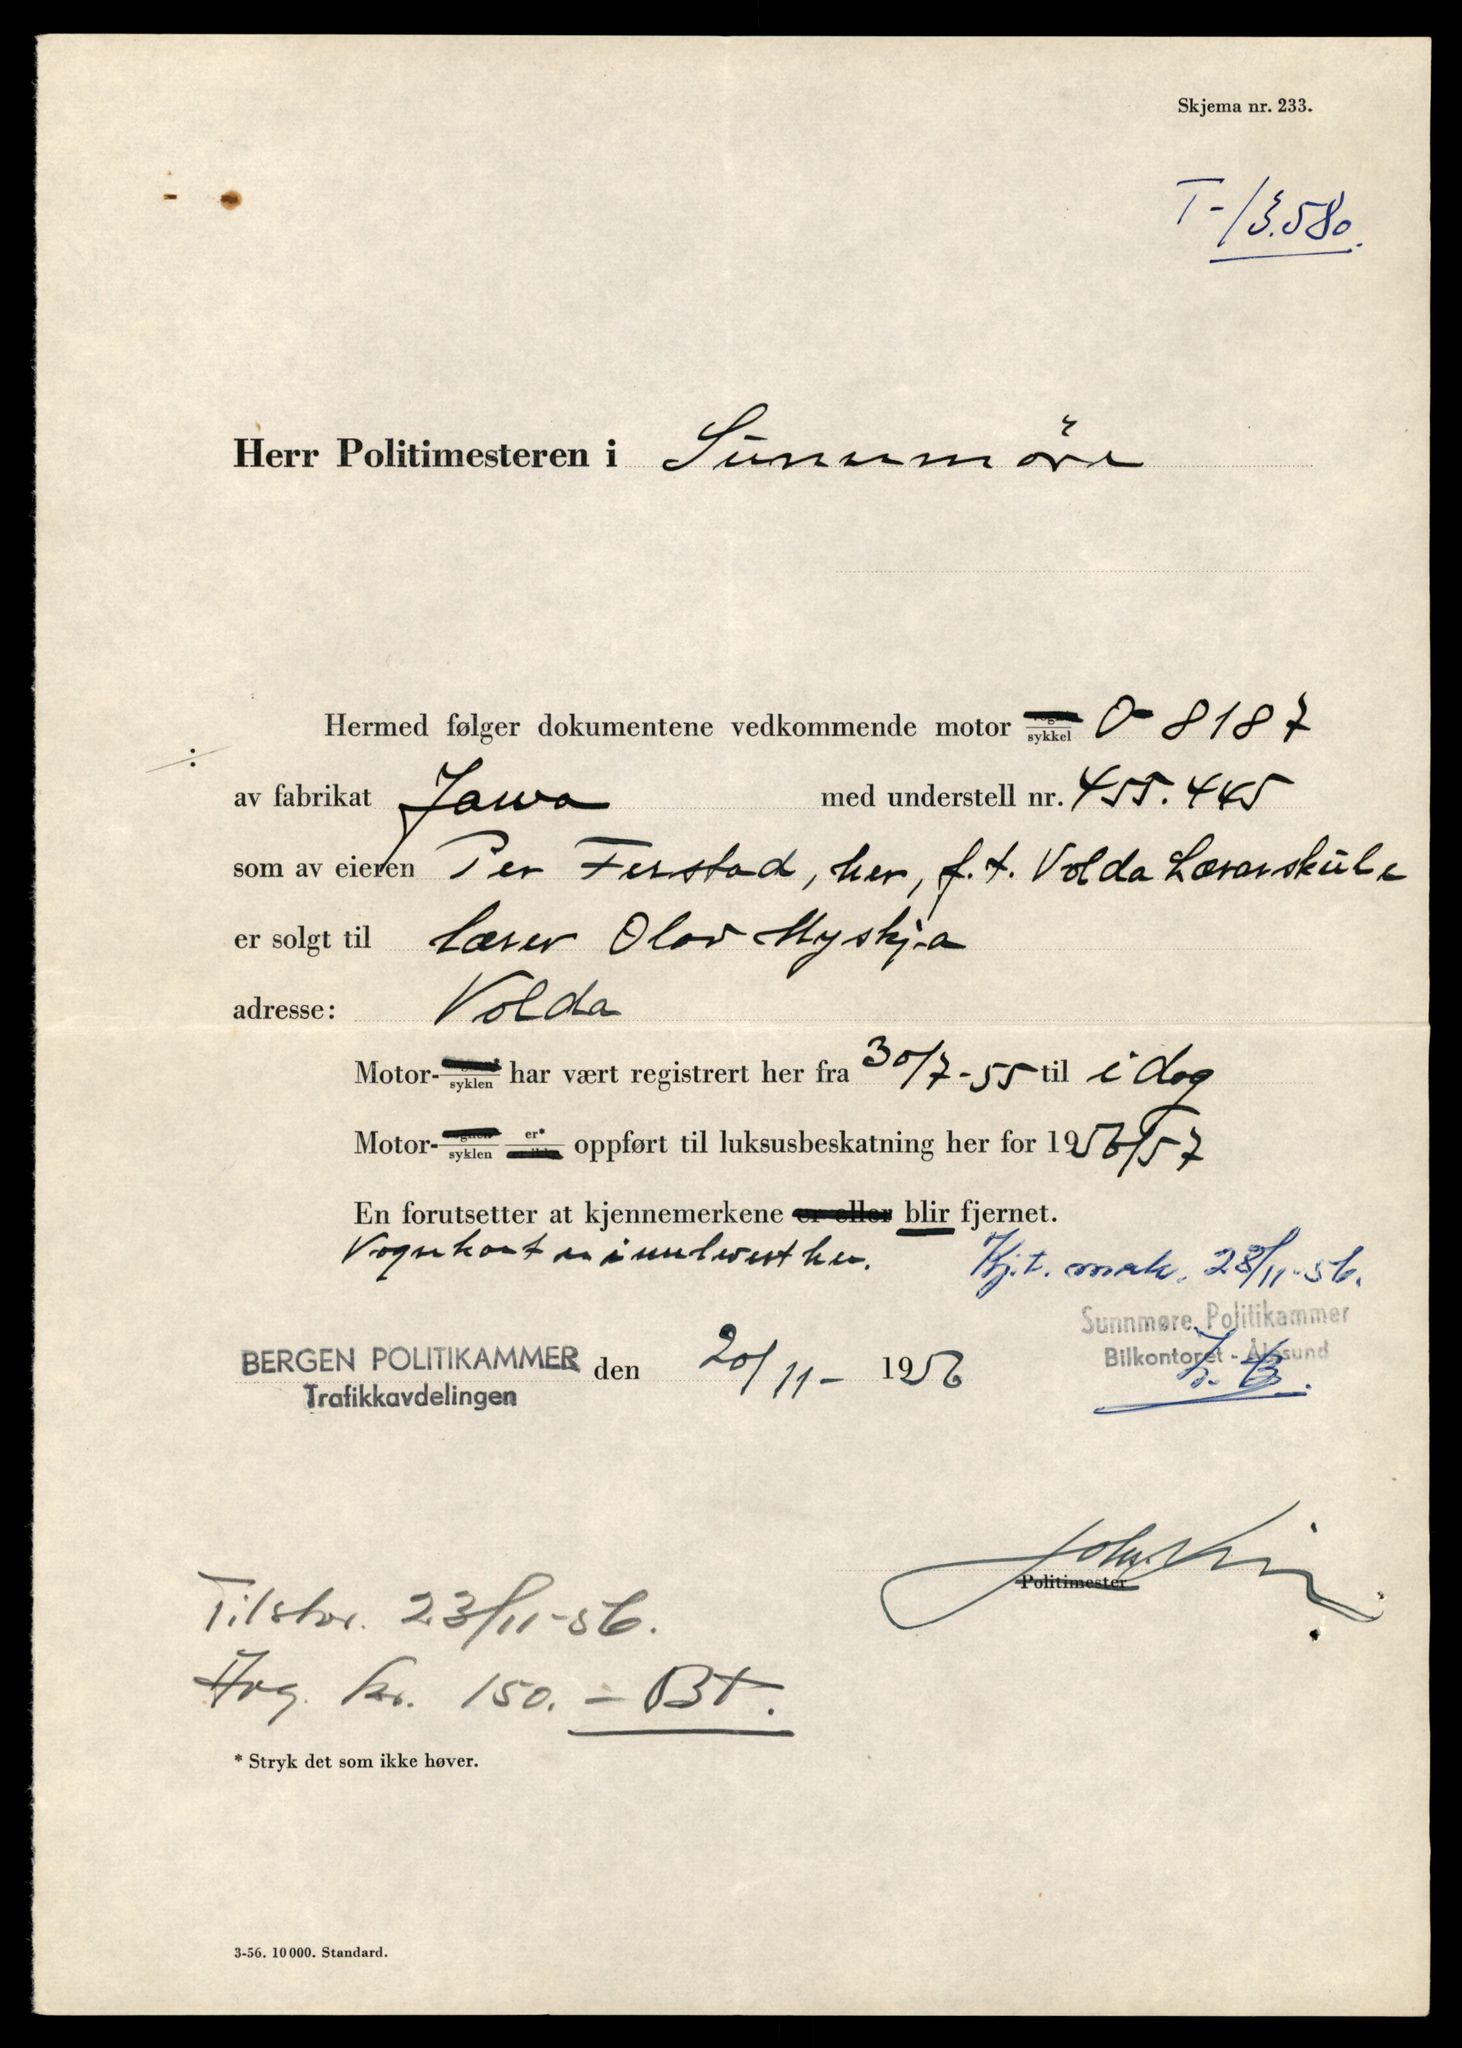 Skjema nr. 233.
T-13.580.
Herr Politimesteren i Sunnmöre
Hermed følger dokumentene vedkommende motor sykkel O-8187
av fabrikat Jawa med understell nr. 455.445
som av eieren Per Ferstad, her, f.t. Volda Lærarskule
er solgt til lærer Olav Myskja
adresse: Volda
Motor- syklen har vært registrert her fra 30/7-55 til i dag
Motor- syklen er* oppført til luksusbeskatning her for 1956/57
En forutsetter at kjennemerkene er eller blir fjernet.
Vognkort er innlevert her.
Kj.t. mrk. 23/11-56.
Sunnmøre Politikammer
Bilkontoret - Ålesund
BERGEN POLITIKAMMER den 20/11- 1956
Trafikkavdelingen
Politimester
Tilskr. 23/11-56.
Avg. kr. 150.- Bt.
* Stryk det som ikke høver.
3-56. 10 000. Standard.